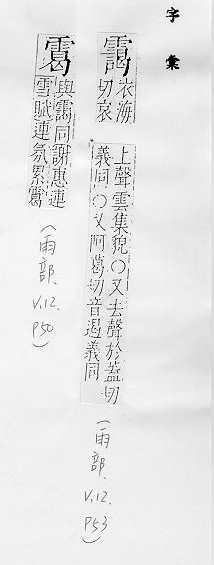 字彙
靄
衣海
切哀
上聲雲集貌○又去聲於葢切
義同○又阿葛切音遏義同
(雨部、V.12、P53)
與靄同謝惠連
雪賦連氛累
(雨部、V.12、P50)